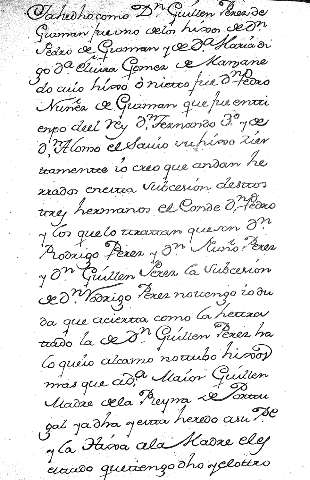 Ya he dho como Dn Guillen Perez de
Guzman fue uno de los hixos de Dn
Pedro de Guzman y de Da Maria di
go Da elvira Gomez de Manzane
do cuio hixo o nietto fue Dn Pedro
Nuñez de Guzman que fue en tti
enpo deel Rey Dn Fernando 3o y de
Dn Alonso el Savio su hixo zier
ttamente io creo que andan he
rrados en esta Subcesion desttos
tres hermanos el Conde Dn Pedro
y los que lo trattan que son Dn
Rodrigo Perez y Dn Nuño Perez
y Dn Guillen Perez la subcesion
de Dn Rodrigo Perez no tengo io du
da que acierta como la hettra
ttado la de Dn Guillen Perez ha
lo que io alcanzo no tubo hixos
mas que a Da Maior Guillen
Madre de la Reyna de Porttu
gal ya dha y esta heredo a su Pe
y la Hixa a la Madre el es
ttado que tengo dho y el ottro